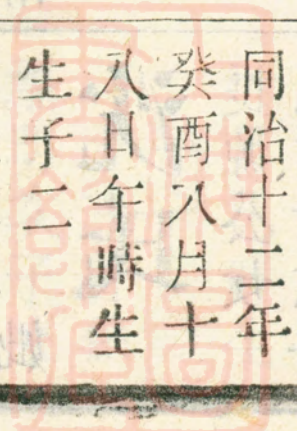 同治十二年
癸酉八月十
八日午時生
生子二